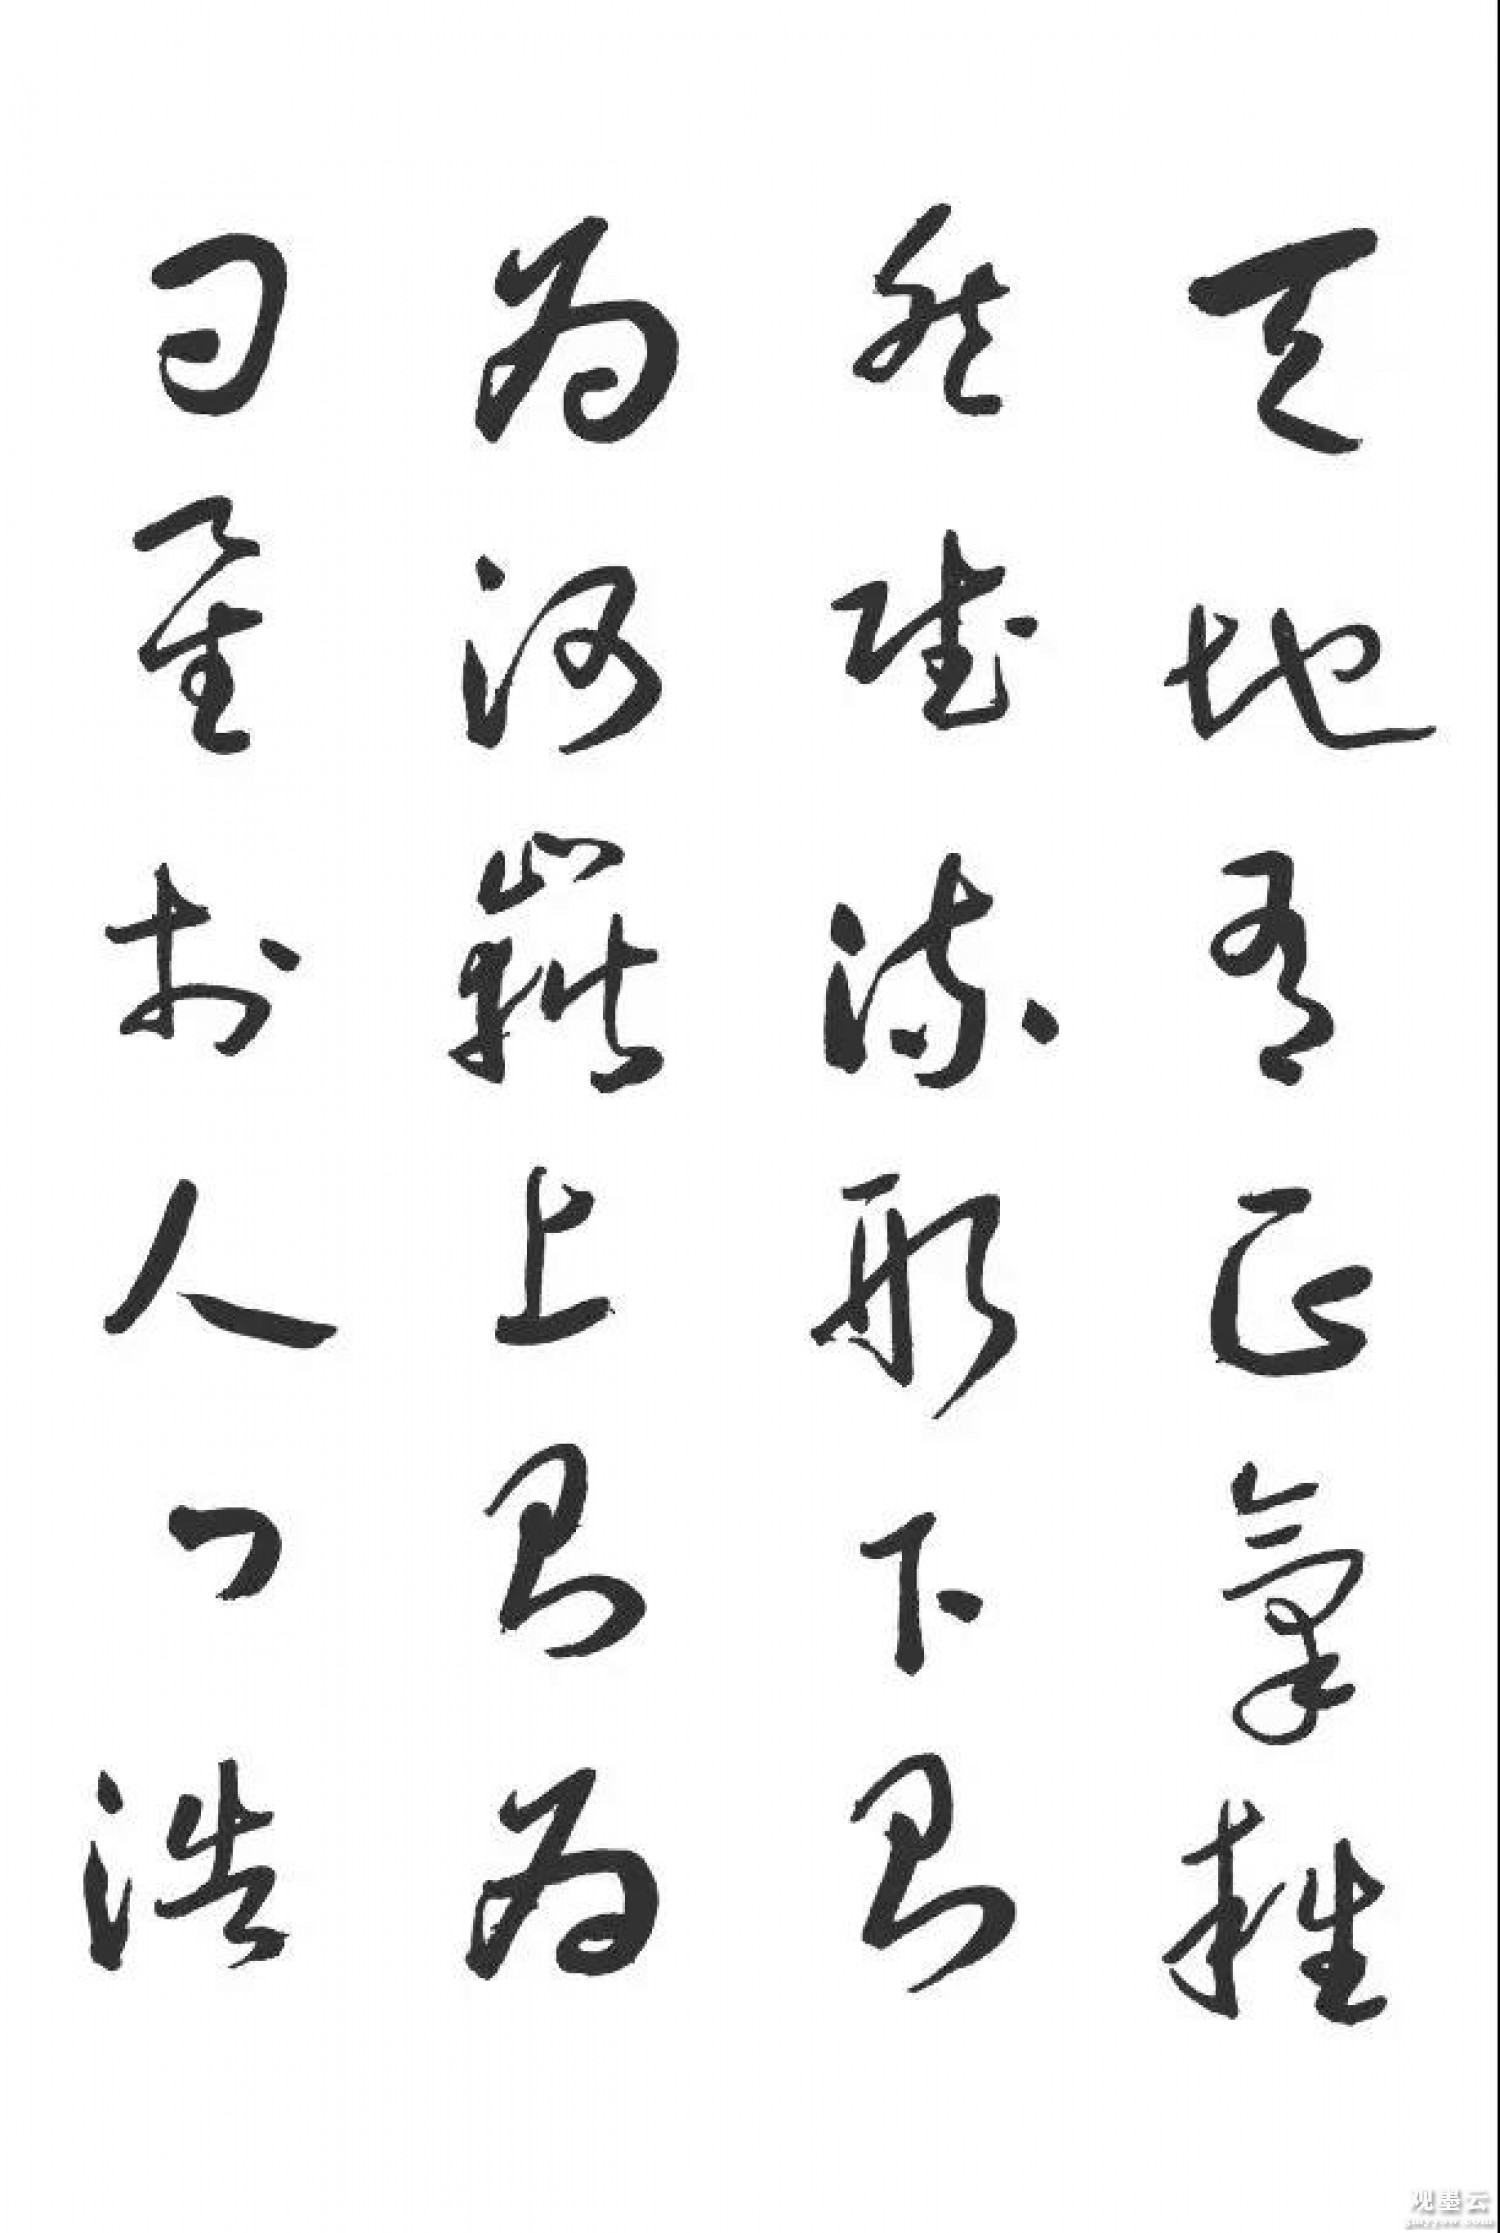 天地有正氣雜
然賦流形下則
為河嶽上則為
日星於人曰浩
观墨云
gmyyun.com